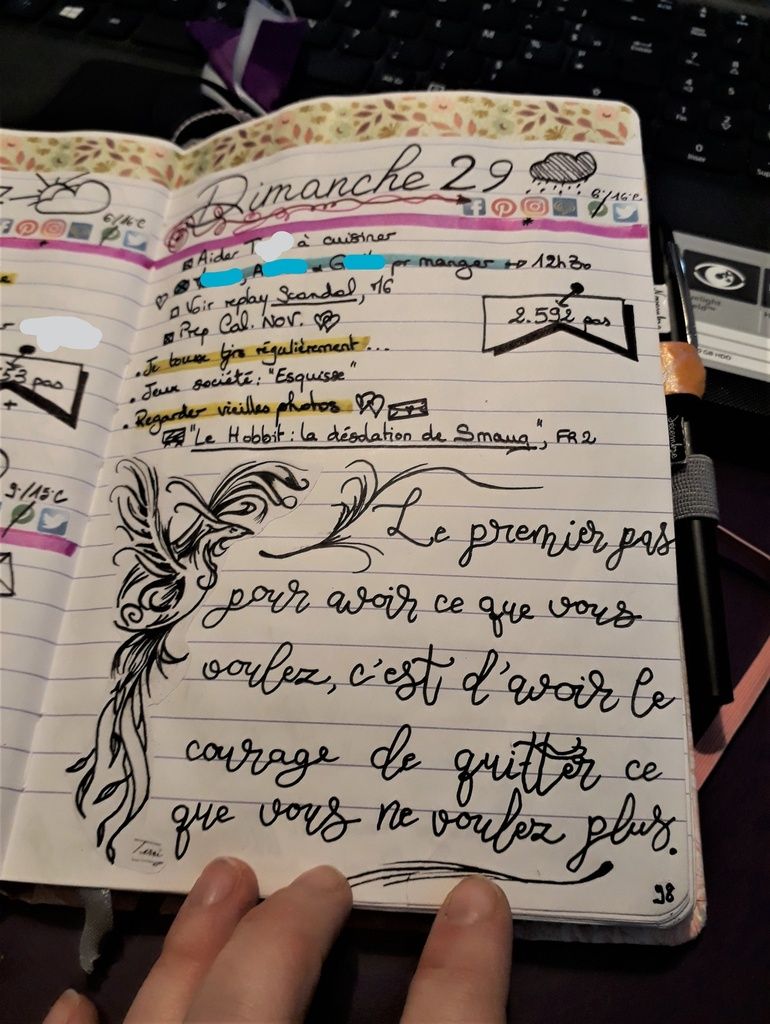 Dimanche 29
6°/16°C
Aider T à cuisiner
, A & G pr manger 12h30
Voir replay Scandal,
Prep Cal. Nov.
2.592 pas
. Je tousse régulièrement...
. Jeux société: "Esquisse"
. Regarder vieilles photos
"Le Hobbit: la désolation de Smaug", FR2
Le premier pas
pour avoir ce que vous
voulez, c'est d'avoir le
courage de quitter ce
que vous ne voulez plus.
98
6/16°C
53 pas
+
9/15°C
Novembre
Décembre
Inser